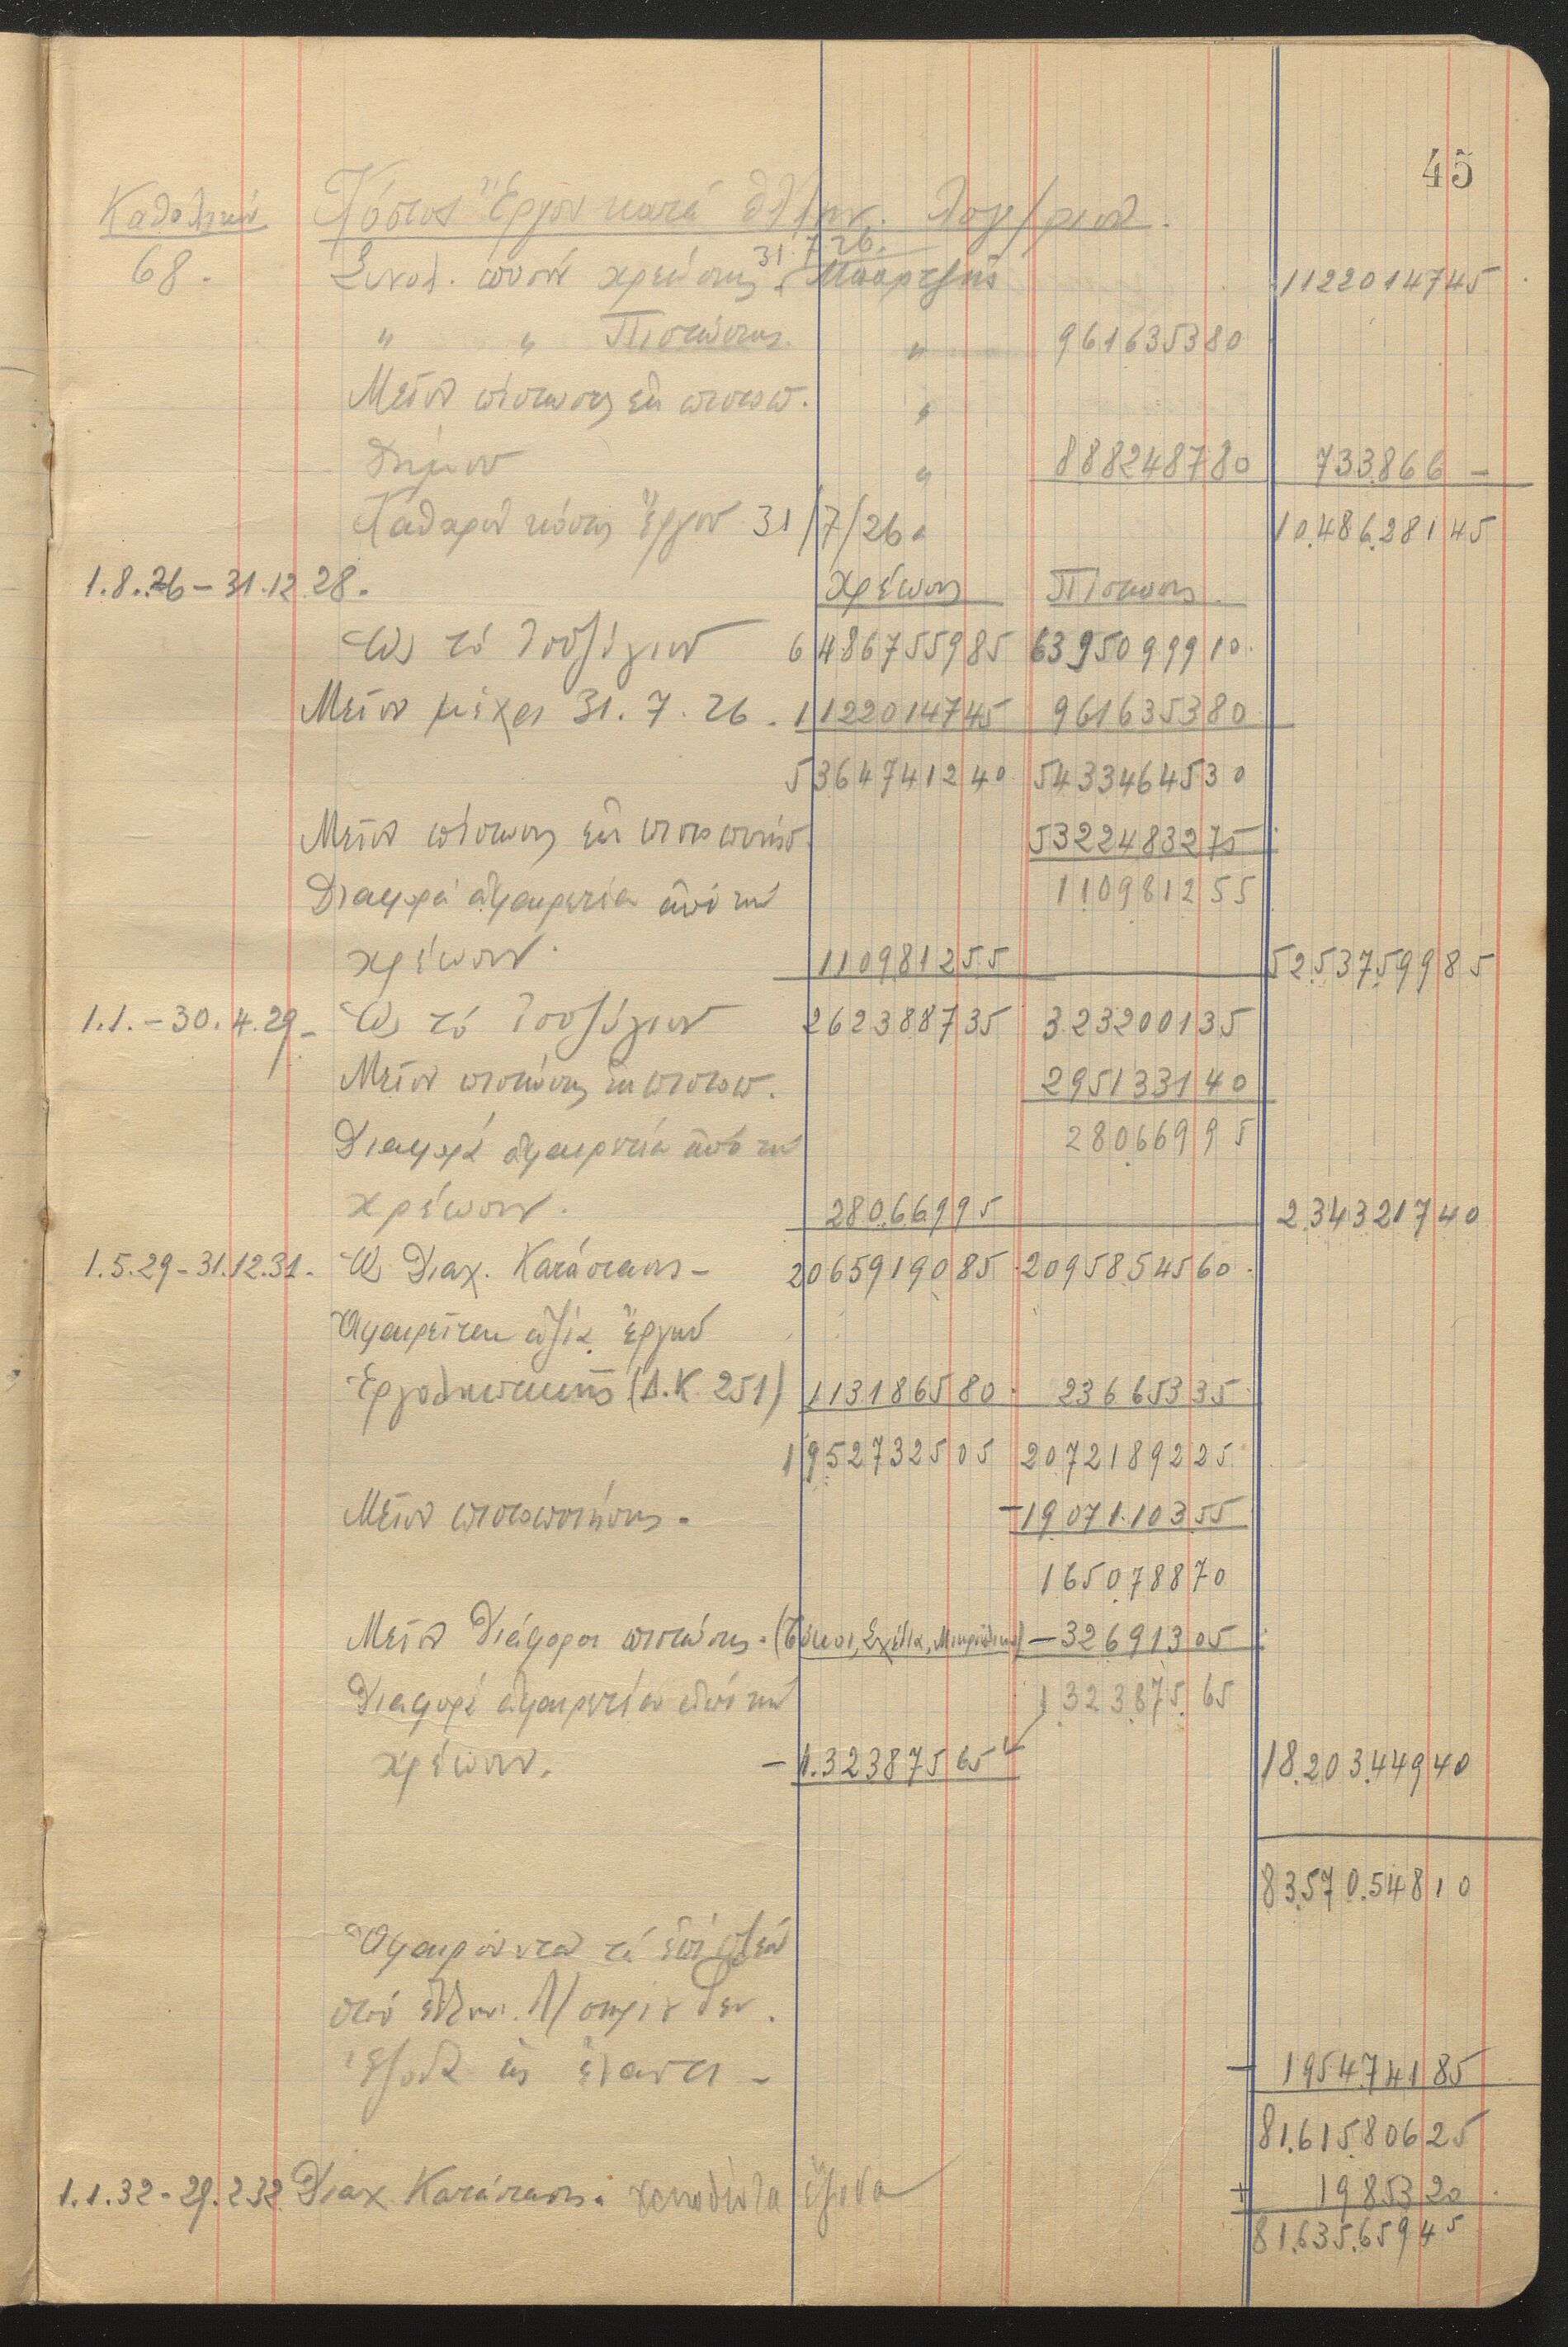 45
Καθολικόν Κόστος Ἔργου κατά Ἑλλην. Λογ/ριαν.
31.7.26.
68. Συνολ. ποσόν χρεώσεως 1122014745
" " Πιστώσεως " 961635380
Μεῖον πίστωσις ἐκ πιστοπ. "
Δήμου " 888248780 733.866 –
Καθαρόν κόστος Ἔργου 31/7/26. 10.486.281 45
1.8.26 – 31.12.28. Χρέωσις Πίστωσις
Ὡς τό Ἰσοζύγιον 6486755985 6395099910.
Μεῖον μέχρι 31.7.26. 1122014745 961635380
5364741240 5433464530
Μεῖον πίστωσις ἐκ πιστοποιήσ. 5322483275
Διαφορά ἀφαιρετέα ἀπό τήν 110981255
χρέωσιν. 110981255 5253759985
1.1. – 30.4.29 – Ὡς τό Ἰσοζύγιον 262388735 323200135
Μεῖον πιστώσεις ἐκ πιστοπ. 295133140
Διαφορά ἀφαιρετέα ἀπό τήν 28066995
χρέωσιν. 28066995 234321740
1.5.29 – 31.12.31. Ὡς Διαχ. Κατάστασις – 2065919085. 2095854560.
Ἀφαιρεῖται ἀξία ἔργων
Ἐργοληπτικῆς (Δ.Κ. 251) 113186580. 23665335.
1952732505 2072189225
Μεῖον πιστοποιήσεις. – 1907110355
165078870
Μεῖον Διάφοροι πιστώσεις. (Τόκοι, Σχέδια, – 32691305
Διαφορά ἀφαιρετέα ἀπό τήν 132387565
χρέωσιν. – 1.323875 65 18.203.449 40
83.570.548 10
Ἀφαιροῦνται τά ἐπί πλέον
Ἔξοδα ὡς ἔναντι – – 195474185
81.615.806 25
1.1.32 – 29.2.32 Διαχ. Κατάστασις. + 19853 20.
81.635.659 45